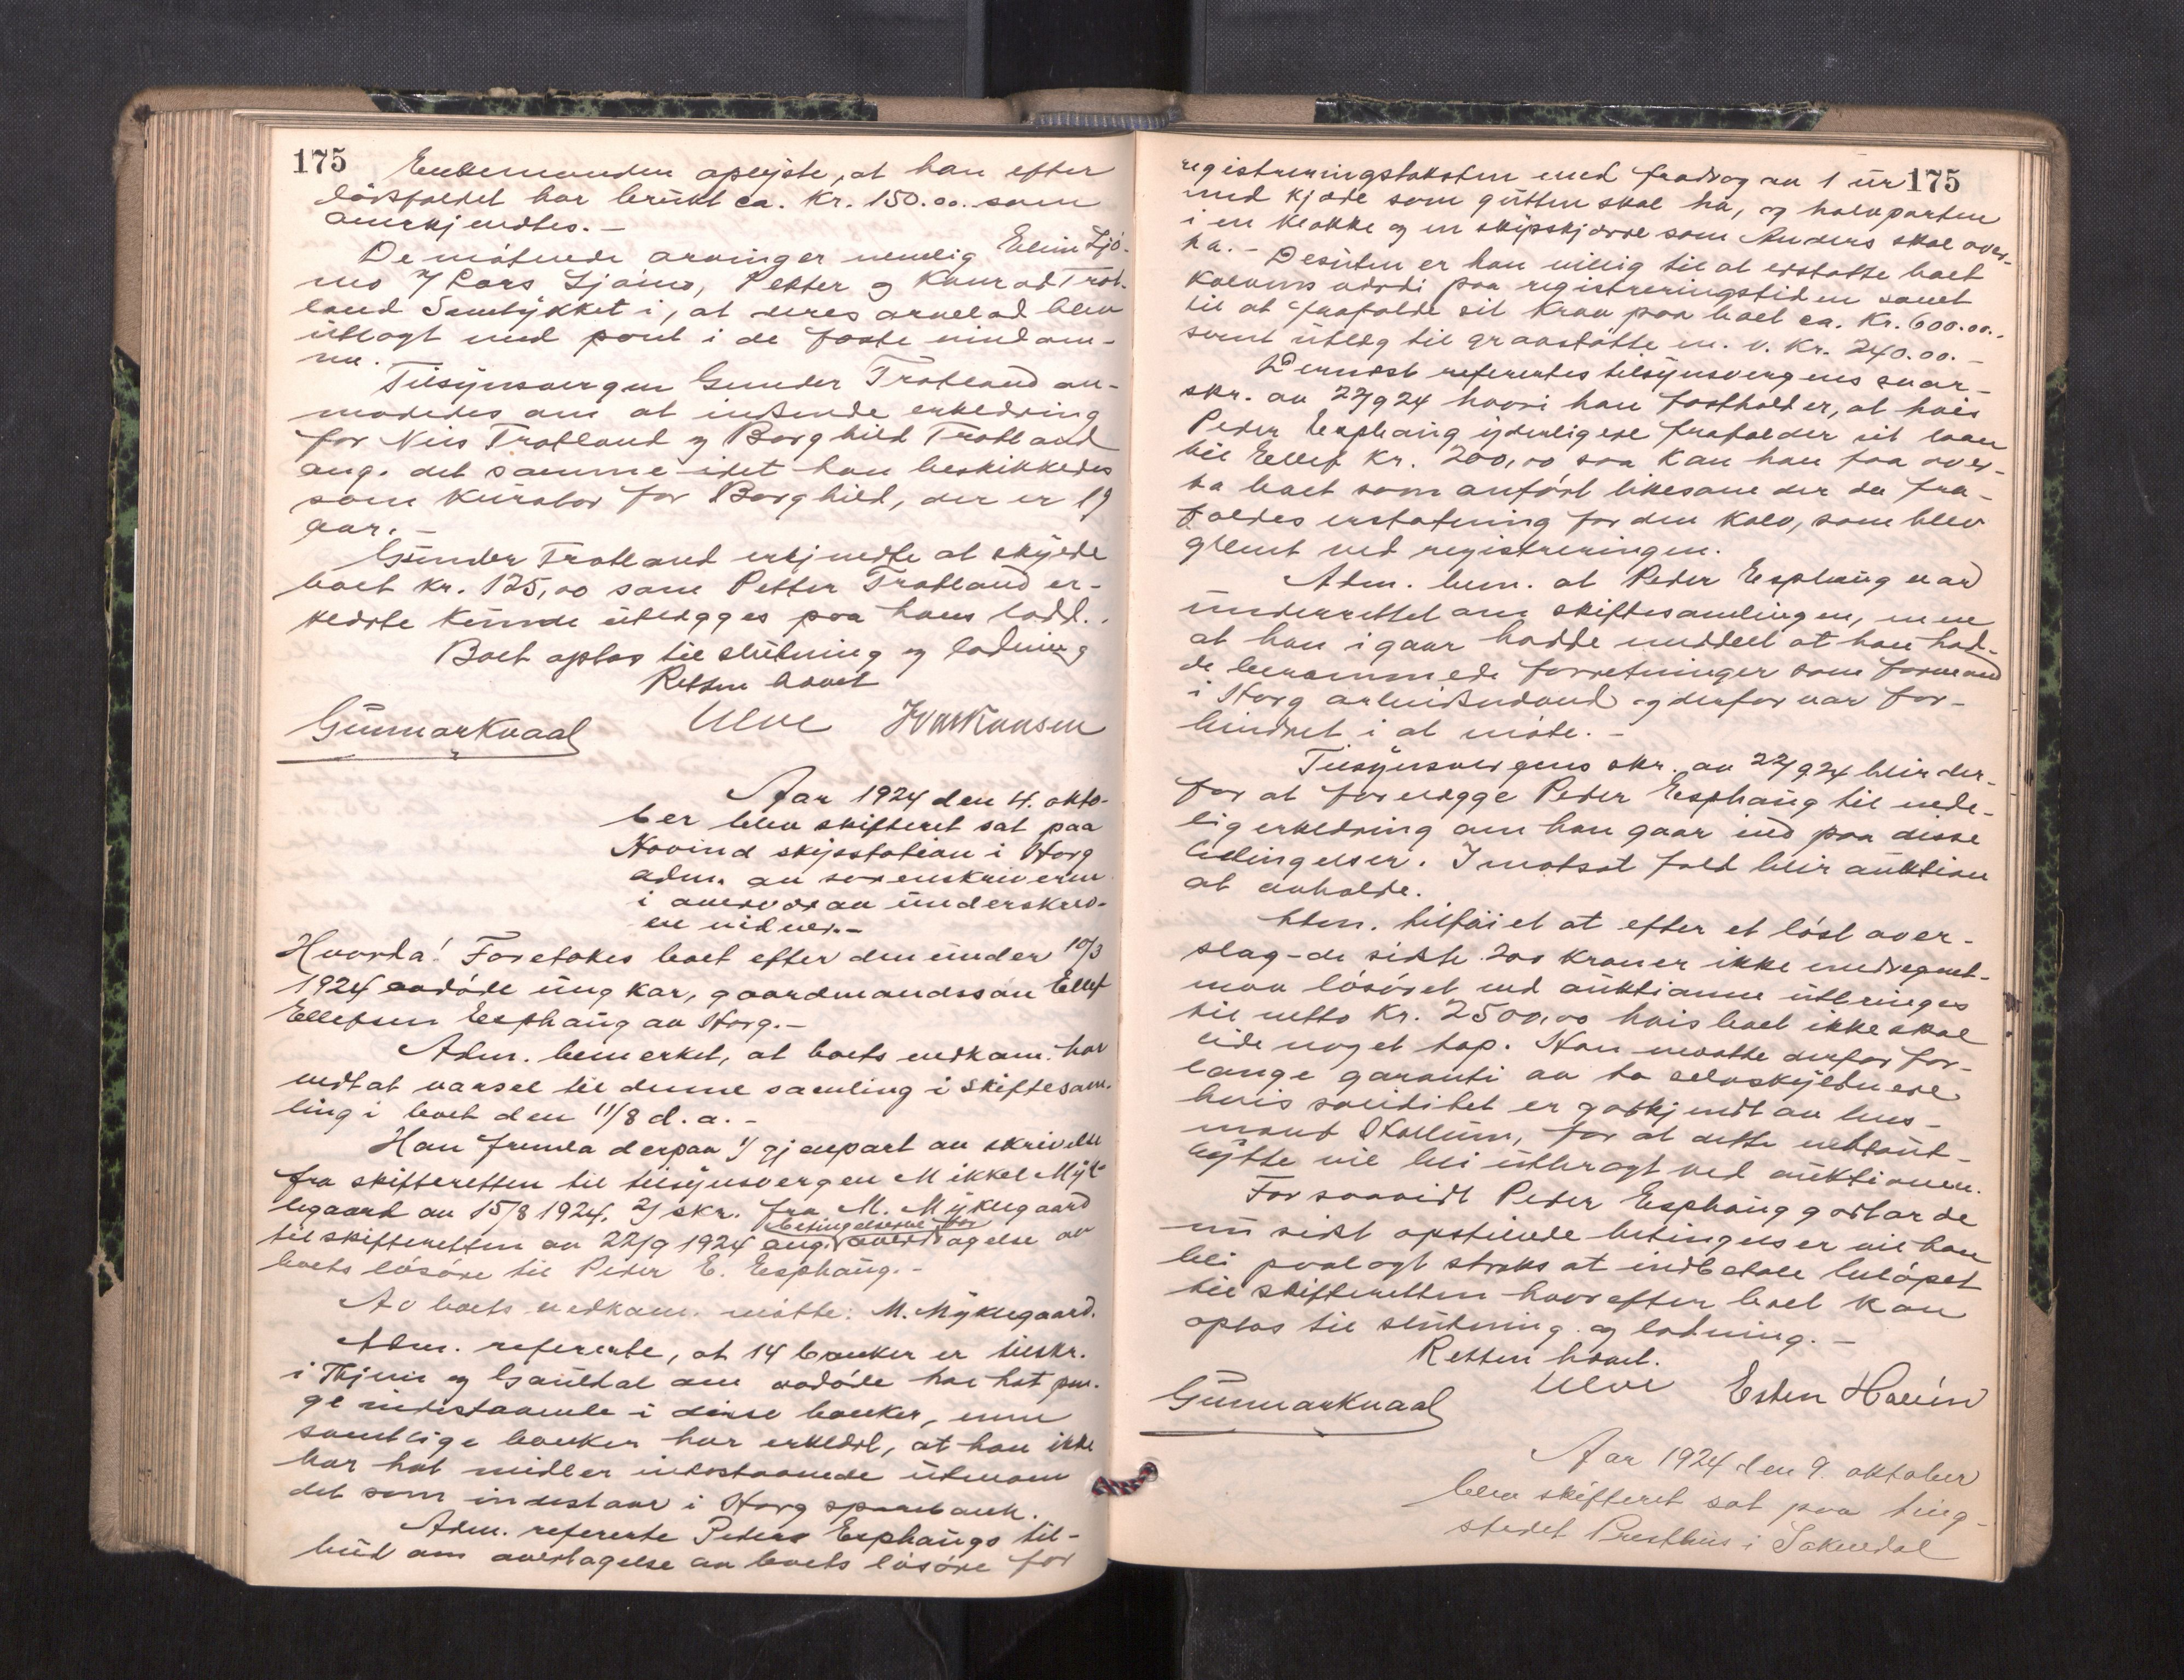 175
Enkemanden oplyste, at han efter
dödsfaldet har brukt ca. Kr. 150.00 som
anerkjendtes. -
De mötende arvinger nemlig Elin Ljö-
mo v/ Lars Ljömo, Petter og Konrad Trot-
land Samtykket i, at deres arvelod blev
utlagt med pant i de faste eiendom-
me.
Tilsynsvergen Gunder Trotland an-
modedes om at indsende erklæring
for Nils Trotland og Borghild Trotland
ang. det samme idet han beskikkedes
som Kurator for Borghild, der er 19
aar. -
Gunder Trotland erkjendte at skylde
boet kr. 125,00 som Petter Trotland er-
klærte kunde utlægges paa hans lodd.
Boet optas til slutning og lodning
Retten hævet
Gunnar Kvaal Ulve
Aar 1924 den 4. okto-
ber blev skifteret sat paa
Hovind skysstation i Horg
adm. av sorenskriveren
i overvær av underskrev-
ne vidner. -
Hvorda! Foretokes boet efter den under 10/3
1924 avdöde ungkar, gaardmandssön Ellef
Ellefsen Esphaug av Horg. -
Adm. bemerket, at boets vedkom. har
vedtat varsel til denne samling i skiftesam-
ling i boet den 11/8 d.a. -
Han fremla derpaa 1/ gjenpart av skrivelse
fra skifteretten til tilsynsvergen Mikkel Myk-
legaard av 15/8 1924. 2/ skr. fra M. Myklegaard
betingelserne for
til skifteretten av 22/9 1924 ang. overdragelse av
boets lösöre til Peder E. Esphaug. -
Av boets vedkom. mötte: M. Myklegaard.
Adm. refererte, at 14 banker er tilskr.
i Thjem og Gauldal om avdöde har hat pen-
ge indestaaende i disse banker, men
samtlige banker har erklært, at han ikke
har hat midler indestaaende utenom
det som indestaar i Horg sparebank.
Adm. refererte Peders Esphaugs til-
bud om overtagelse av boets lösöre for
registreringstaksten med fradrag av 1 ur 175
med kjæde som gutten skal ha, og halvparten
i en klokke og en skipskjærre som Anders skal over-
ha. - Desuten er han villig til at erstatte boet
kalvens værdi paa registreringstiden samt
til at frafalde sit krav paa boet ca. Kr. 600.00.
samt utlæg til gravstötte m. v. Kr. 240.00. -
Dernæst refertes tilsynsvergens svar-
skr. av 22/9 24 hvori han fastholder, at hvis
Peder Esphaug yderligere frafalder sit laan
til Ellef kr. 200,00 saa kan han faa over-
ta boet som anfört likesom der da fra-
faldes erstatning for den kalv, som blev
glemt ved registreringen.
Adm. bem. at Peder Esphaug var
underrettet om skiftesamlingen, men
at han igaar hadde meddelt at han had-
de berammede forretninger som formand
i Horg arbeidsnævnd og derfor var for-
hindret i at möte. -
Tilsynsvergens skr. av 22/9 24 blir der-
for at forelægge Peder Esphaug til ende-
lig erklæring om han gaar ind paa disse
betingelser. I motsat fald blir auktion
at avholde.
Adm. tilföiet at efter et löst over-
slag - de sidste 200 kroner ikke medregnet -
maa lösöret ved auktionen utbringes
til netto Kr. 2500,00 hvis boet ikke skal
lide noget tap. Han maatte derfor for-
lange garanti av to selvskyldnere
hvis soliditet er godkjendt av lens-
mand Skollum, for at dette nettout-
bytte vil bli utbragt ved auktionen.
Forsaavidt Peder Esphaug godtar de
nu sidst opstillede betingelser vil han
bli paalagt straks at indbetale belöpet
til skifteretten hvorefter boet kan
optas til slutning og lodning. -
Retten hævet.
Gunnar Kvaal Ulve Esten Hovin
Aar 1924 den 9. oktober
blev skifteret sat paa ting-
stedet Presthus i Soknedal